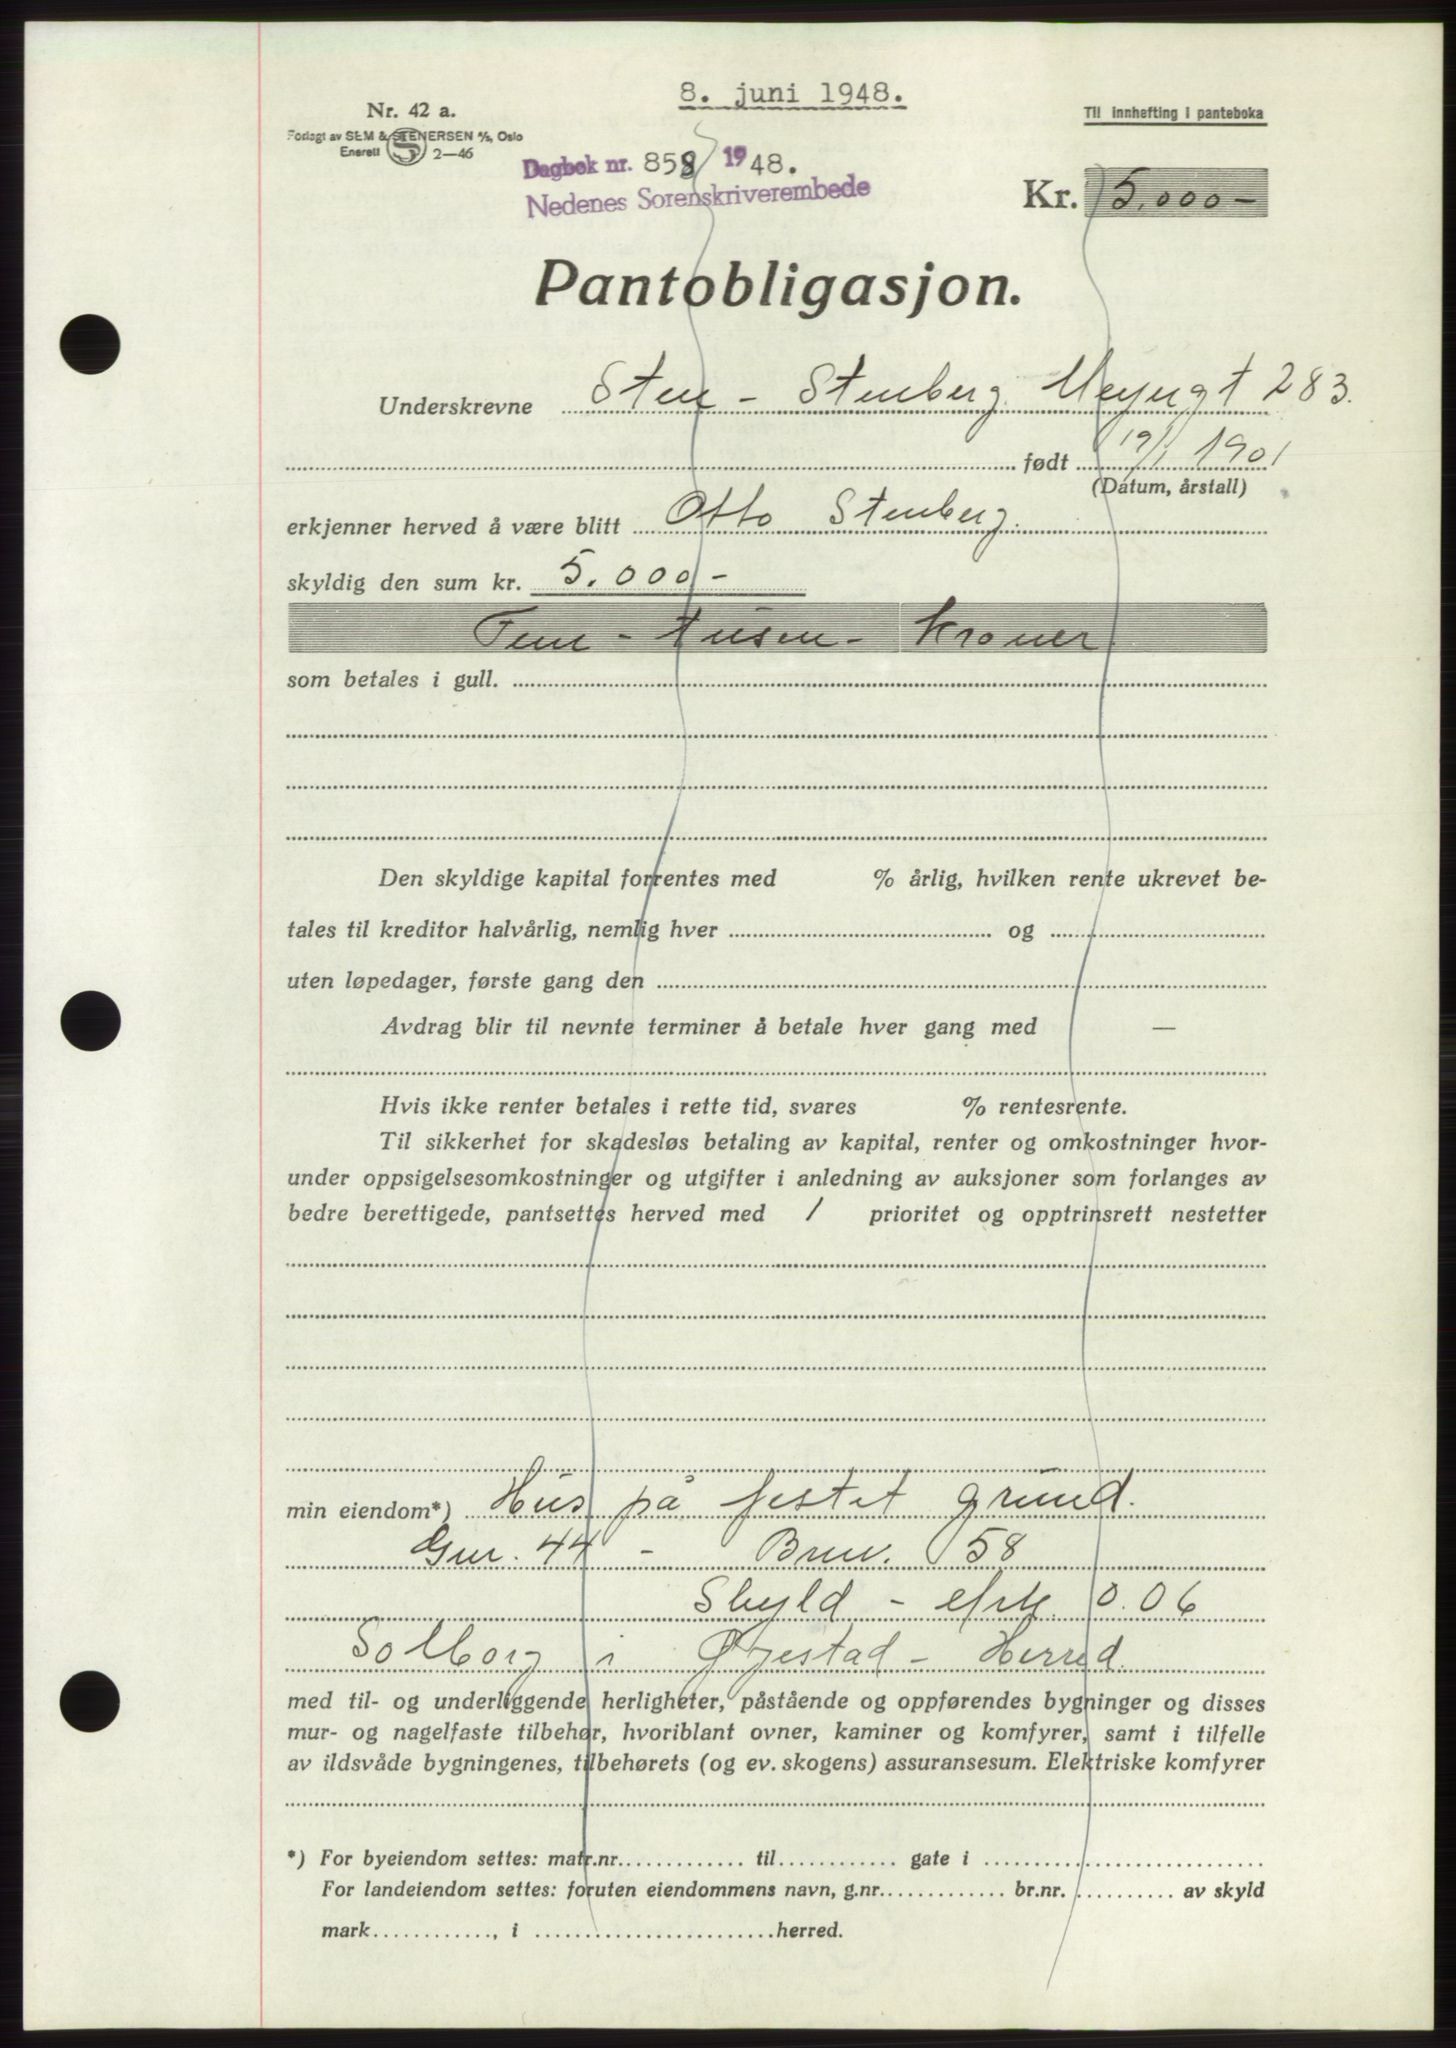 8. juni 1948.
Nr. 42 a.
Forlagt av SEM & STENERSEN A/S, Oslo
Enerett 2—46
Til innhefting i panteboka
Dagbok nr. 858 1948.
Nedenes Sorenskriverembede
Kr. 5.000 -
Pantobligasjon.
Underskrevne Sten - Stenberg. 283.
født 19/1 1901
(Datum, årstall)
erkjenner herved å være blitt Otto Stenberg.
skyldig den sum kr. 5.000 -
Fem - tusen - Kroner
som betales i gull.
Den skyldige kapital forrentes med % årlig, hvilken rente ukrevet be-
tales til kreditor halvårlig, nemlig hver og
uten løpedager, første gang den
Avdrag blir til nevnte terminer å betale hver gang med —
Hvis ikke renter betales i rette tid, svares % rentesrente.
Til sikkerhet for skadesløs betaling av kapital, renter og omkostninger hvor-
under oppsigelsesomkostninger og utgifter i anledning av auksjoner som forlanges av
bedre berettigede, pantsettes herved med 1 prioritet og opptrinsrett nestetter
min eiendom*) Hus på festet grund.
Gnr. 44 - Bnr. 58
Skyld - 0.06
Solborg i Øyestad - Herred.
med til- og underliggende herligheter, påstående og oppførendes bygninger og disses
mur- og nagelfaste tilbehør, hvoriblant ovner, kaminer og komfyrer, samt i tilfelle
av ildsvåde bygningenes, tilbehørets (og ev. skogens) assuransesum. Elektriske komfyrer
*) For byeiendom settes: matr.nr. til gate i
For landeiendom settes: foruten eiendommens navn, g.nr. br.nr. av skyld
mark , i herred.